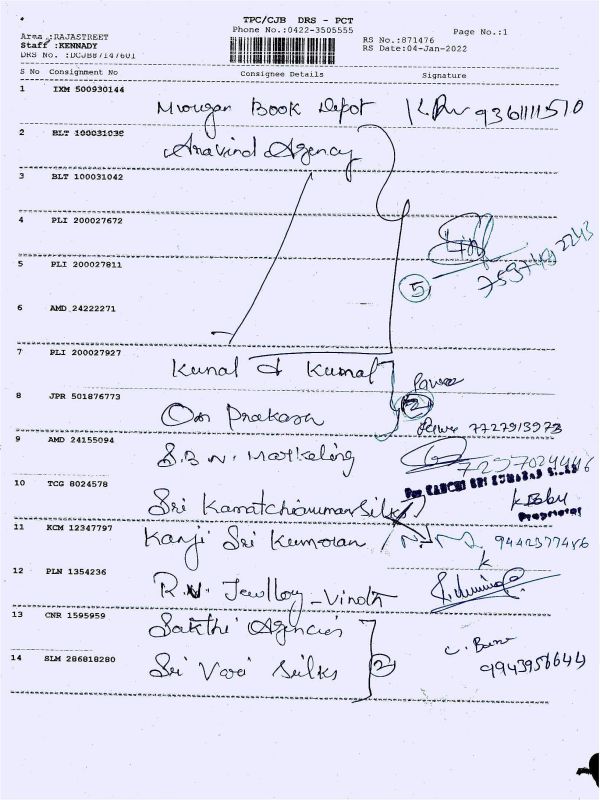 TPC/CJB DRS - PCT
Phone No.:0422-3505555
Page No.:1
Area :RAJASTREET
Staff :KENNADY
DRS No. :DCJB87147601
RS No.:871476
RS Date:04-Jan-2022
S No Consignment No Consignee Details Signature
1 IXM 500930144
Murugan Book Depot 9361111510
2 BLT 100031038
Aravind Agency
3 BLT 100031042
4 PLI 200027672
5 PLI 200027811
5
6 AMD 24222271
7 PLI 200027927
Kunal & Kumal
8 JPR 501876773
2
Om Prakash
7727913973
9 AMD 24155094
S.B.N. Marketing
10 TCG 8024578
Sri Kamatchiamman Silks
Proprietor
11 KCM 12347797
Kanji Sri Kumaran 9442377456
12 PLN 1354236
R.N. Jewllory - Vinoth
13 CNR 1595959
Sakthi Agencies
14 SLM 286818280
Sri Vari Silks 2
9943956644